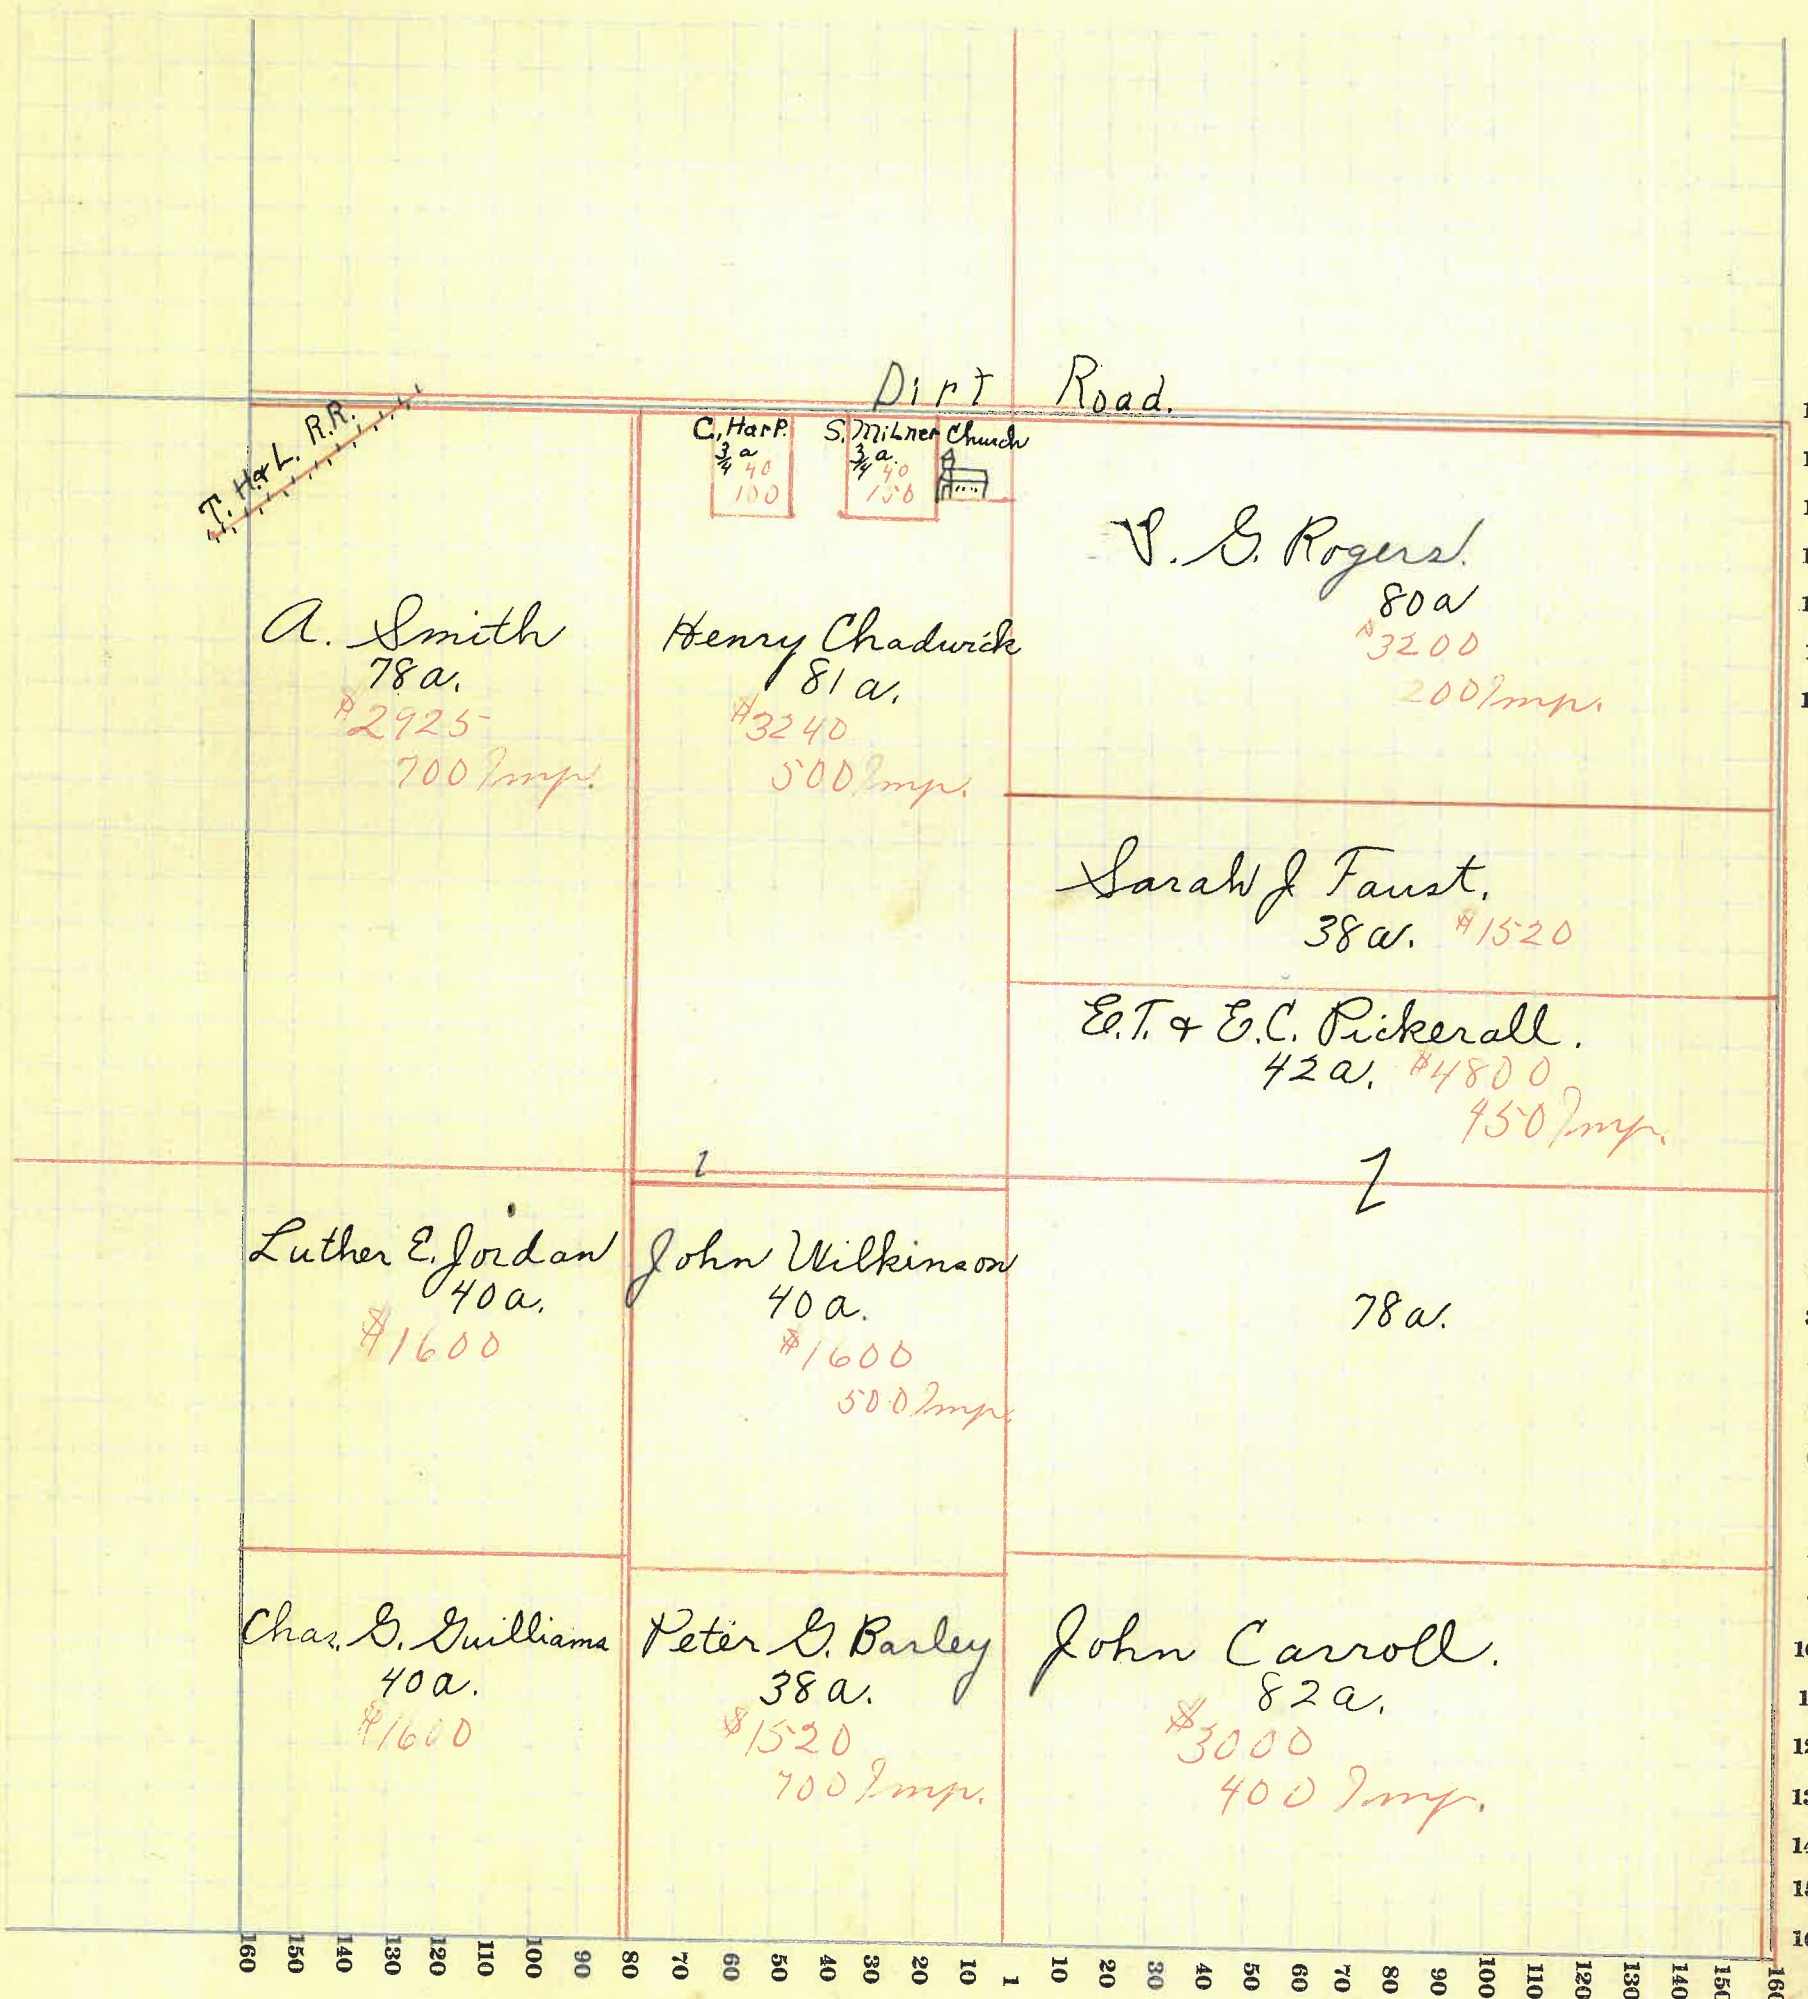 Dirt Road.
T. H. & L. R.R.
C. Harp.
3/4 a
40
100
S. Milner
3/4 a.
40
150
Church
A. Smith
78 a.
$2925
700 Imp.
Henry Chadwick
81 a.
$3240
500 Imp.
G. Rogers.
80 a
$3200
200 Imp.
Sarah J Faust.
38 a. $1520
E.T. & E.C. Pickerall.
42 a. $4800
450 Imp.
Luther E. Jordan
40 a.
$1600
John Wilkinson
40 a.
$1600
500 Imp.
78 a.
Chas. G. Guilliams
40 a.
$1600
Peter G. Barley
38 a.
$1520
700 Imp.
John Carroll.
82 a.
$3000
400 Imp.
160 150 140 130 120 110 100 90 80 70 60 50 40 30 20 10 1 10 20 30 40 50 60 70 80 90 100 110 120 130 140 150 160